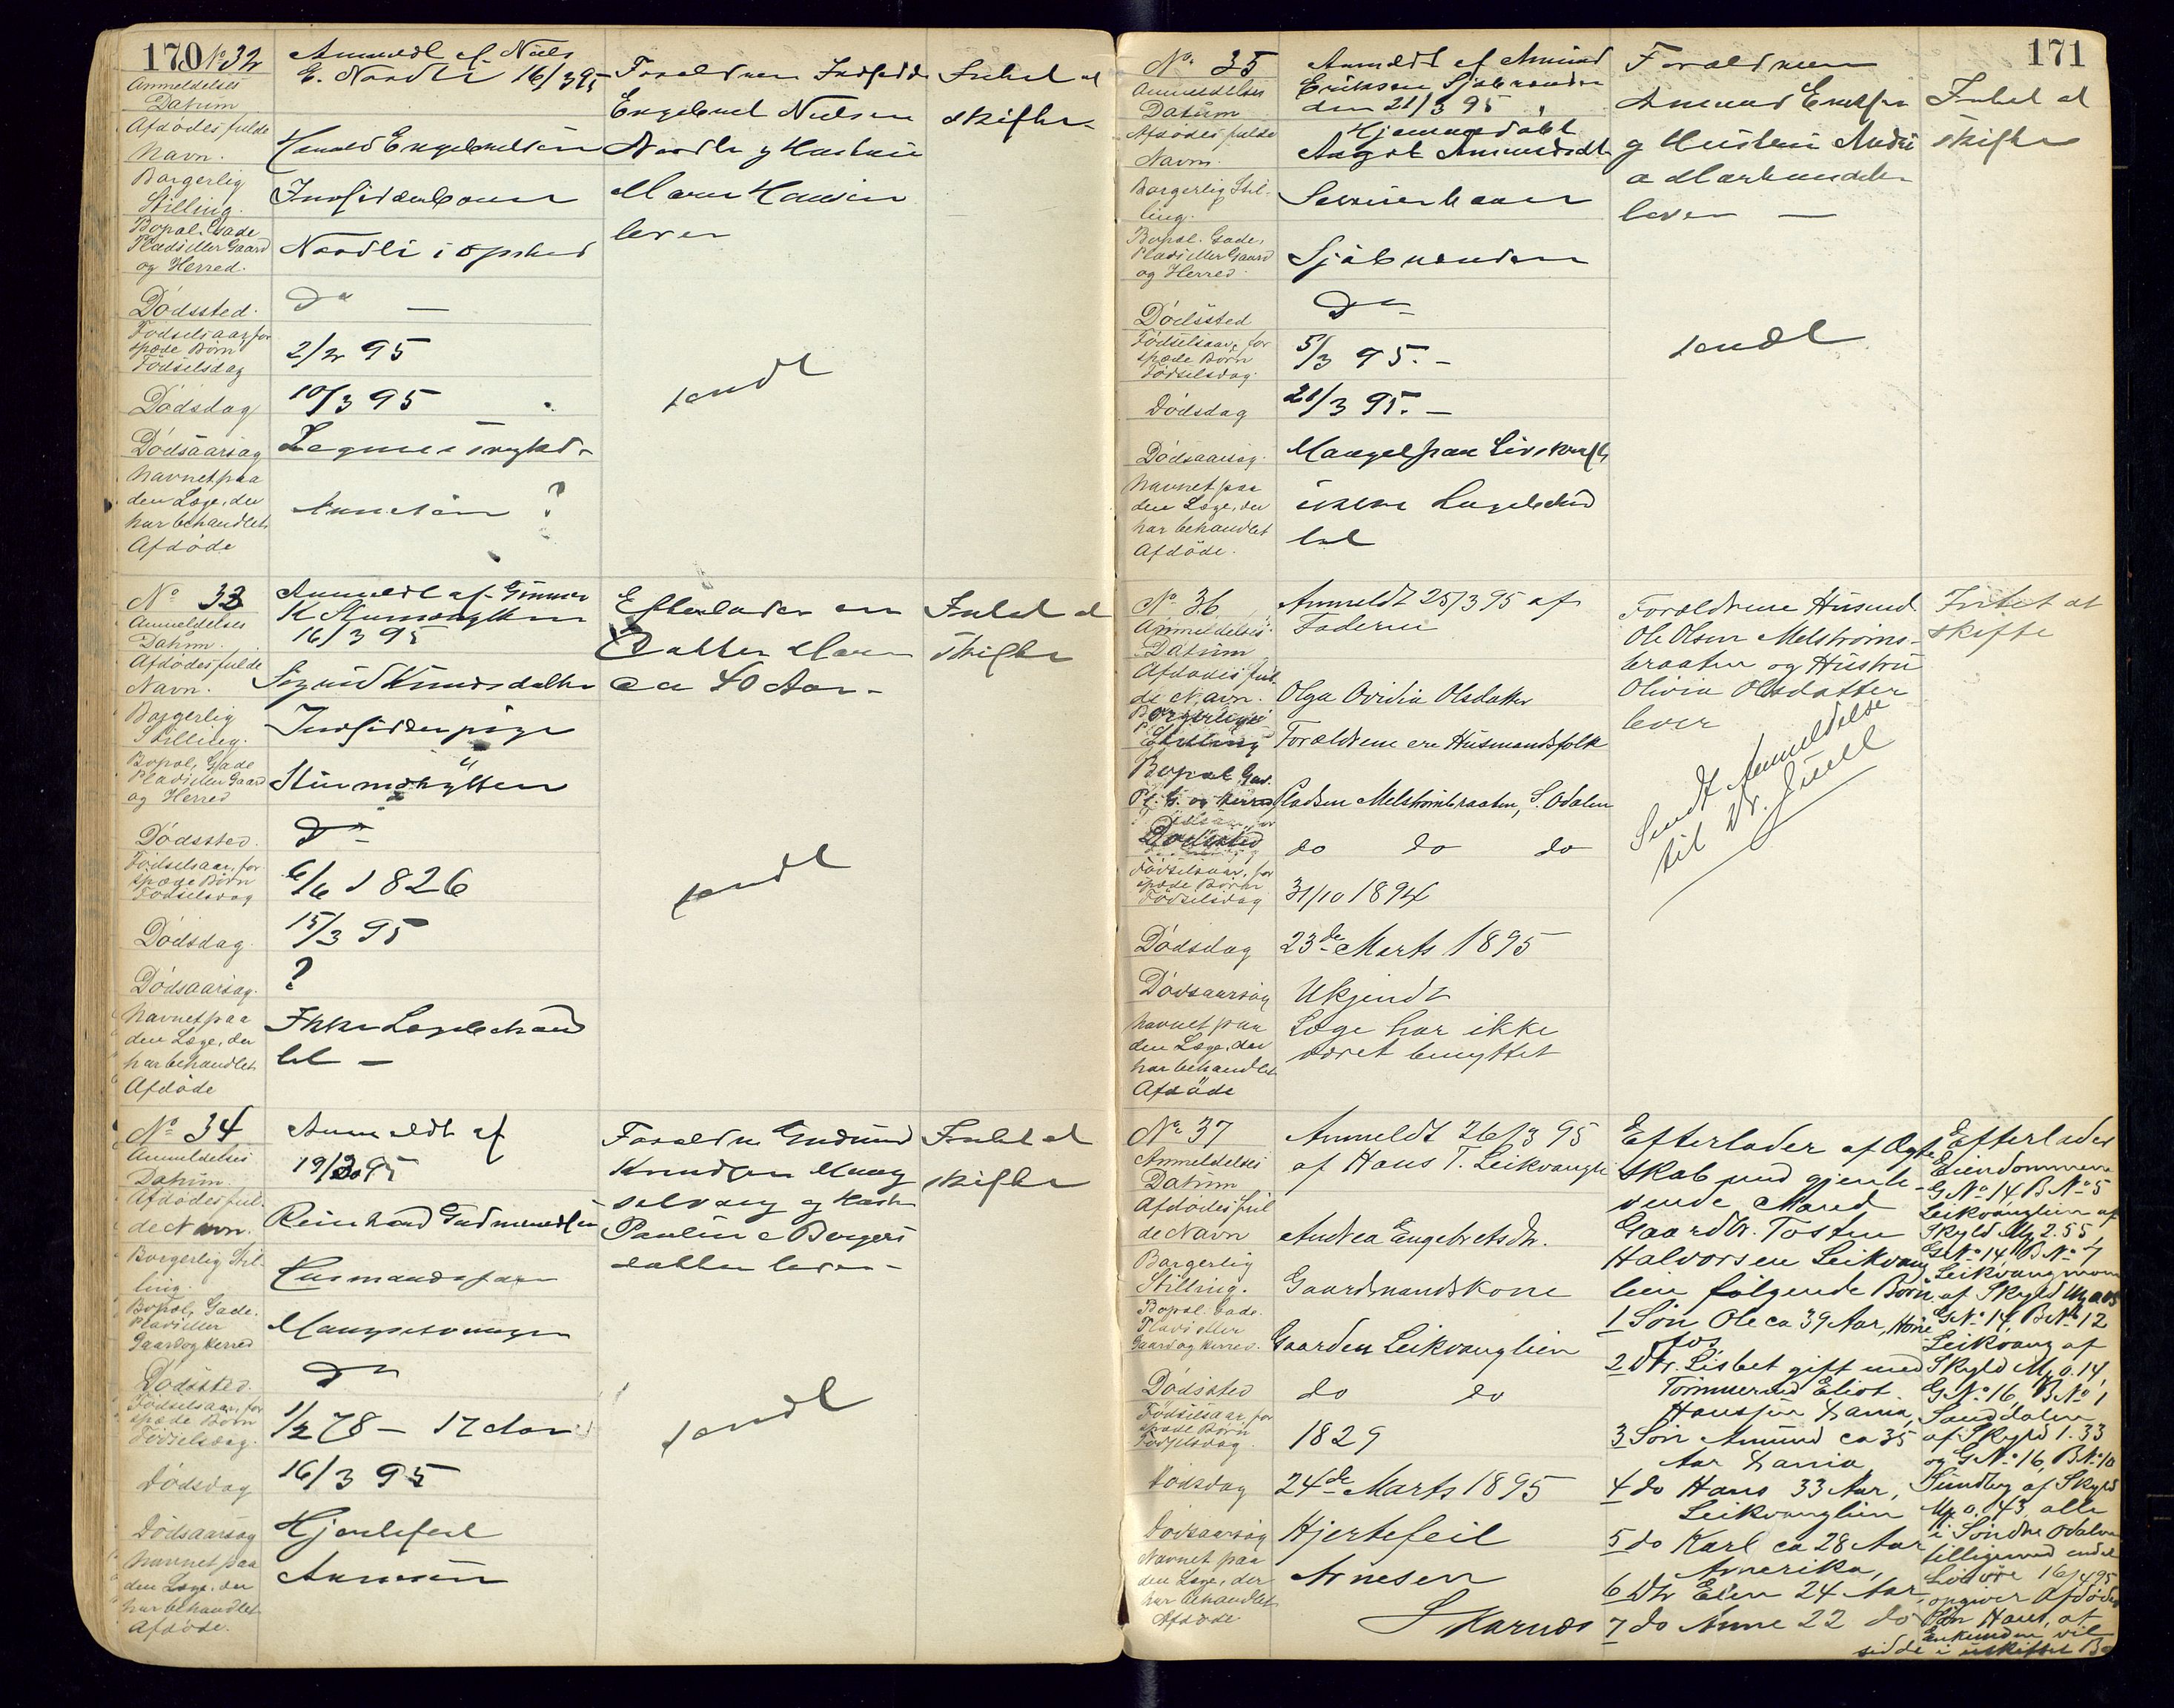 170
No 32
Anmeldt af Niels
E. Nordli 16/3 95
Anmeldelses
Datum
Afdødes fulde
Navn.
Harald Engebretsen
Borgerlig
Stilling.
Inderstbarn
Bopæl, Gade
Plads eller Gaard
og Herred.
Nordli i
Dødssted.
Do —
Fødselsaar, for
spæde Børn
Fødselsdag
2/2 95
Dødsdag
10/3 95
Dødsaarsag
Navnet paa
den Læge, der
har behandlet
Afdøde
?
Forældrene
Engebret Nielsen
Nordli og Hustru
Maren
lever
sendt
Intet at
skifte
No 33
Anmeldelses
Datum.
Anmeldt af Gunner
K
16/3 95
Afdødes fulde
Navn.
Sigrid Knudsdatter
Borgerlig
Stilling.
Bopæl, Gade
Plads eller Gaard
og Herred
Dødssted.
Do —
Fødselsaar, for
spæde Børn
Fødselsdag
6/6 1826
Dødsdag.
15/3 95
Dødsaarsag.
?
Navnet paa
den Læge, der
har behandlet
Afdøde
Ikke Lægebehand
let —
Efterlader en
Datter Maren
ca 40 Aar —
sendt
Intet at
skifte
No 34
Anmeldelses
Datum.
Anmeldt af
19/3 95
Afdødes ful-
de Navn.
Reinhard Gudmundsen
Borgerlig Stil-
ling.
Husmandssøn
Bopæl, Gade.
Plads eller
Gaard og Herred
Dødssted.
Do
Fødselsaar, for
spæde Børn
Fødselsdag.
1/2 78 — 17 Aar
Dødsdag
16/3 95
Dødsaarsag
Hjertefeil
Navnet paa
den Læge, der
har behandlet
Afdøde.
Arnesen
Forældre Gudmund
Knudsen
og Hustru
Pauline Borgers
datter lever —
sendt
Intet at
skifte
171
No 35
Anmeldelses
Datum
Anmeldt af Amund
Eriksen
den 21/3 95
Afdødes fulde
Navn.
Aagot Amundsdtr
Borgerlig Stil-
ling.
Bopæl. Gade,
Plads eller Gaard
og Herred.
Dødssted
Do —
Fødselsaar, for
spæde Børn
Fødselsdag.
5/3 95. —
Dødsdag
21/3 95. —
Dødsaarsag.
Mangel paa Livskraft
Navnet paa
den Læge, der
har behandlet
Afdøde.
ikke Lægebehand
let
Forældrene
Amund Eriksen
og Hustru
lever —
sendt
Intet at
skifte
No 36
Anmeldelses-
Datum
Anmeldt 25/3 95 af
Faderen
Afdødes ful-
de Navn.
Olga Ovidia Olsdatter
Borgerlige
Stilling
Forældrene ere Husmandsfolk
Bopæl Gad.
Pl. G. og Herred
Pladsen Melstrømbraaten, S. Odalen
Dødssted
do do do
Fødselsaar, for
spæde Børn
Fødselsdag
31/10 1894
Dødsdag
23de Marts 1895
Dødsaarsag
Ukjendt
Navnet paa
den Læge, der
har behandlet
Afdøde
Læge har ikke
været benyttet
Forældrene Husmd.
Ole Olsen Melstrøms-
braaten og Hustru
Olivia Olsdatter
lever
Sendt Anmeldelse
til Dr. Juell
Intet at
skifte
No 37
Anmeldelses
Datum
Anmeldt 26/3 95
af Hans T. Leikvanglien
Afdødes ful
de Navn
Andrea Engebretsdtr.
Borgerlig
Stilling.
Gaardmandskone
Bopæl. Gade.
Plads eller
Gaard og Herred.
Gaarden Leikvanglien
Dødssted
do do
Fødselsaar, for
spæde Børn
Fødselsdag.
1829
Dødsdag
24de Marts 1895
Dødsaarsag
Hjertefeil
Navnet paa
den Læge, der
har behandlet
Afdøde
Arnesen
Skarnes
Efterlader af Ægte
skab med gjenle-
vende Mand
Gaardbr. Tosten
Halvorsen Leikvang
lien følgende Børn
1 Søn Ole ca 39 Aar, Høne
fos
2 Dtr. Lisbet gift med
Tømmermd Eliot.
Hanssen
3 Søn Amund ca 35
Aar
4 do Hans 33 Aar,
Leikvanglien
5 do Karl ca 28 Aar
Amerika,
6 Dtr Elen 24 Aar
7 do Anne 22 do
Efterlader
Eiendommene
G No 14 B No 5
Leikvanglien af
Skyld M 2.55,
G No 14, B No 7
Leikvangmoen
af Skyld M 0.05
G No 14, B No 12
Leikvang af
Skyld M 0.14,
G No 16, B No 1
Sanddalen
af Skyld 1.33
og G No 16, B No 10
Sundby af Skyld
M 0.43, alle
i Søndre Odalen
tilligemed endel
Løsøre 16/4 95
opgiver Afdødes
Søn Hans, at
Enkemanden vil
sidde i uskiftet Bo